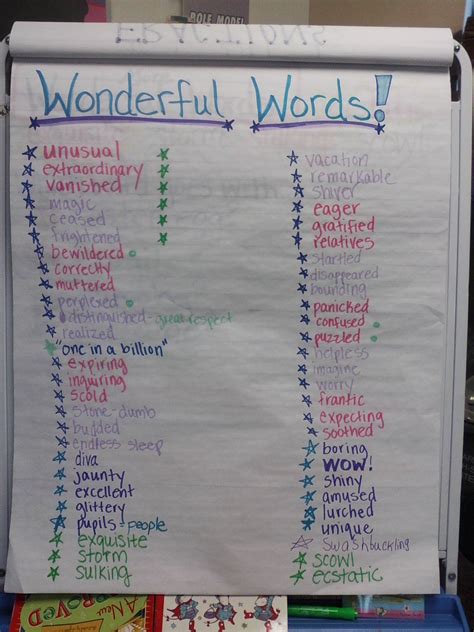 ROLE MODEL
FRACTIONS
Wonderful Words!
unusual
extraordinary
vanished
magic
ceased
frightened
bewildered
correctly
muttered
perplexed
distinguished - great respect
realized
"one in a billion"
expiring
inquiring
scold
stone-dumb
budded
endless sleep
diva
jaunty
excellent
glittery
pupils - people
exquisite
storm
sulking
vacation
remarkable
shiver
eager
gratified
relatives
startled
disappeared
bounding
panicked
confused
puzzled
helpless
imagine
worry
frantic
expecting
soothed
boring
WOW!
shiny
amused
lurched
unique
swashbuckling
scowl
ecstatic
A New